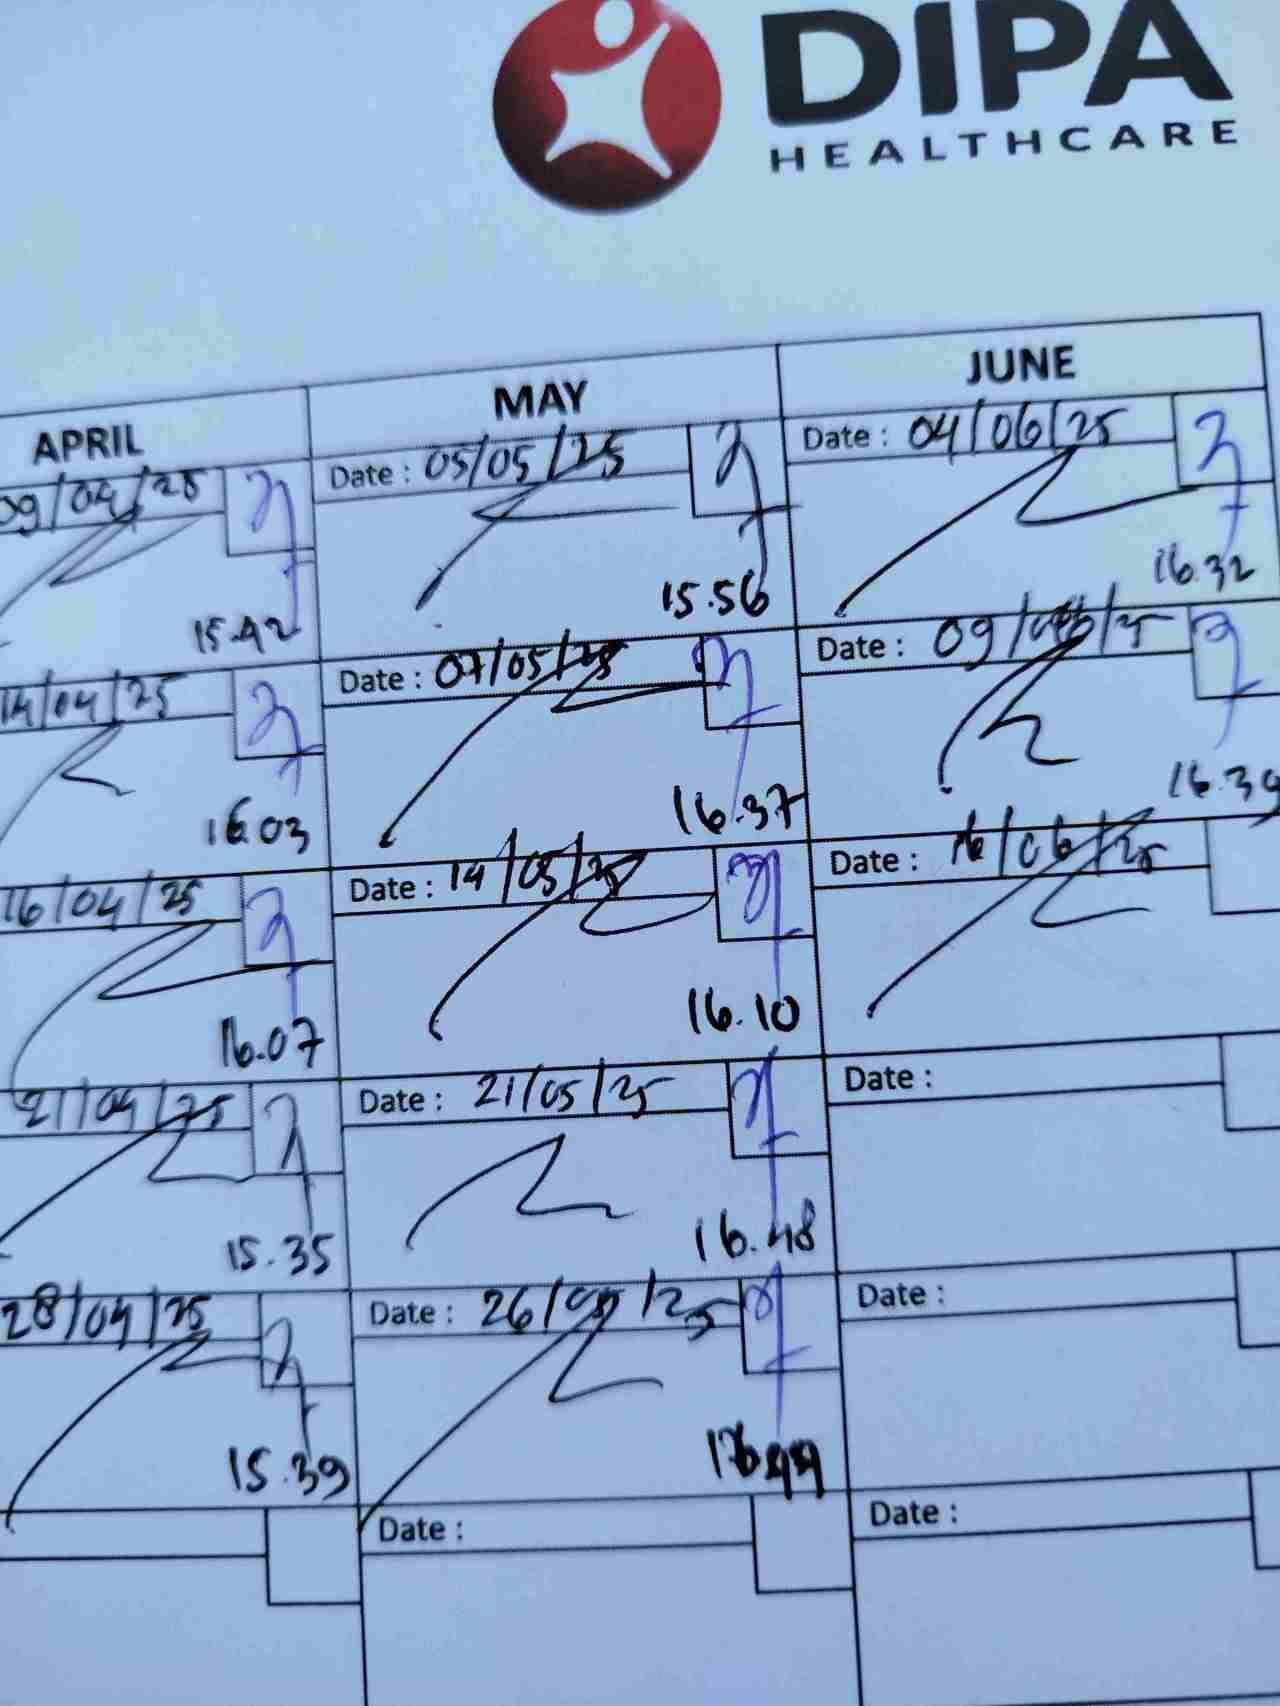 DIPA
HEALTHCARE
APRIL
MAY
JUNE
09/04/25
15.42
14/04/25
16.03
16/04/25
16.07
21/04/25
15.35
28/04/25
15.39
Date : 05/05/25
15.56
Date : 07/05/25
16.37
Date : 14/05/25
16.10
Date : 21/05/25
16.48
Date : 26/05/25
Date :
Date : 04/06/25
16.32
Date : 09/06/25
16.39
Date : 16/06/25
Date :
Date :
Date :